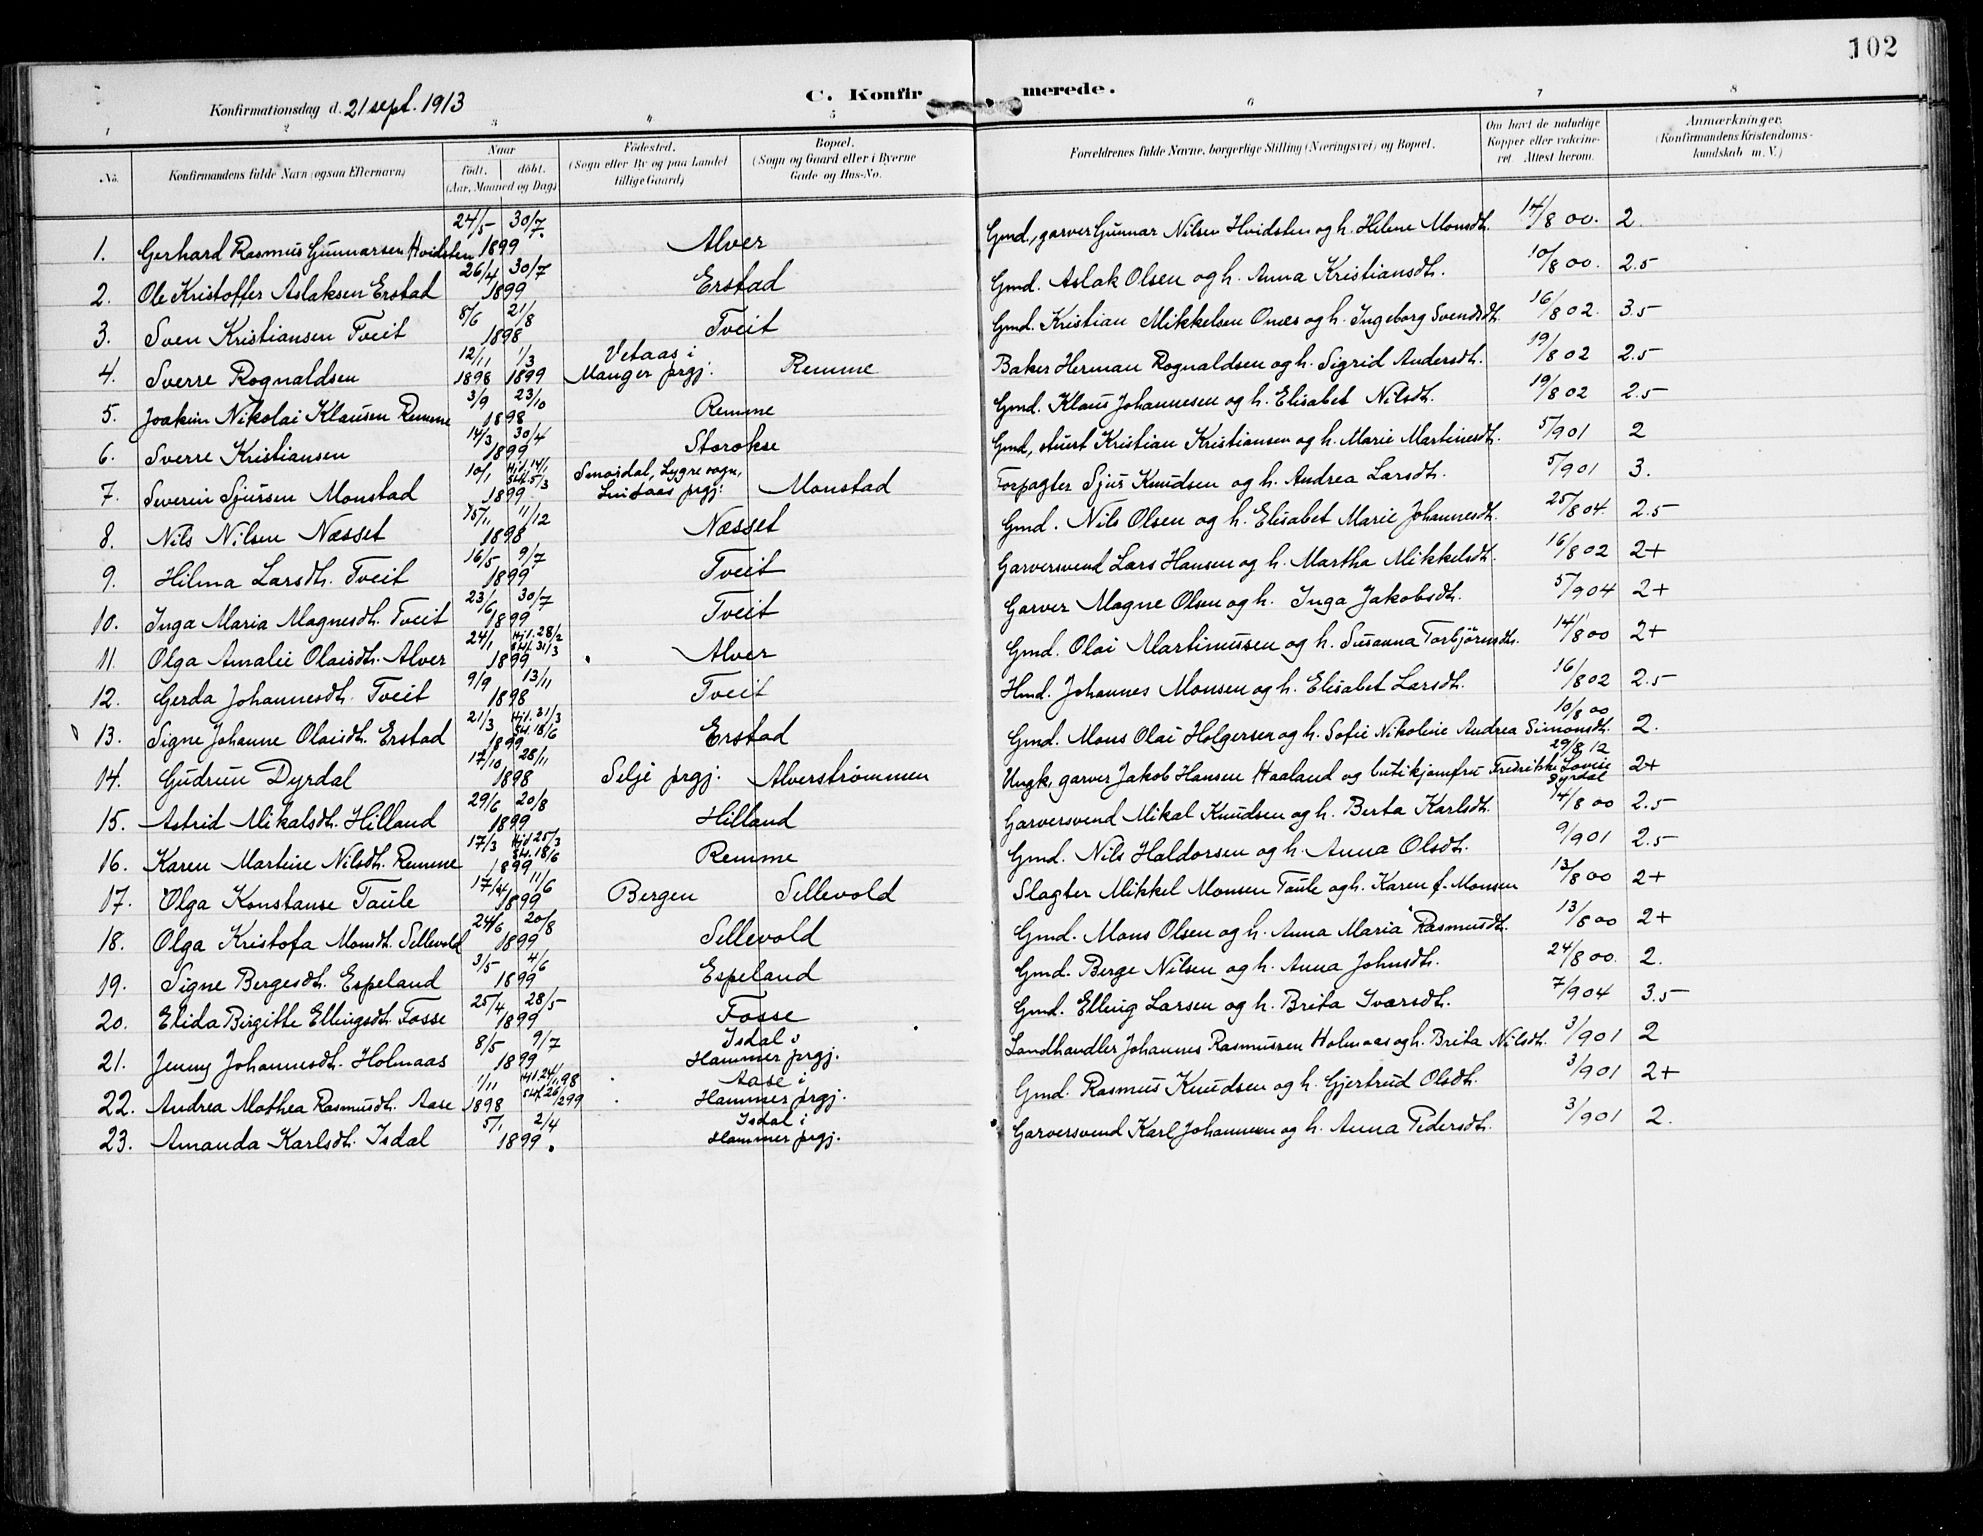 102
Konfirmationsdag d. 21 sept. 1913
C. Konfirmerede.
1 2 3 4 5 6 7 8
No. Konfirmandens fulde Navn (ogsaa Efternavn) Naar født. døbt. (Aar, Maaned og Dag) Fødested. (Sogn eller By og paa Landet tillige Gaard) Bopæl. (Sogn og Gaard eller i Byerne Gade og Hus-No. Forældrenes fulde Navne, borgerlige Stilling (Næringsvei) og Bopæl. Om havt de naturlige Kopper eller vakcineret. Attest herom. Anmærkninger, (Konfirmandens Kristendomskundskab m. V.)
1. Gerhard Rasmus Gunnarsen Hvidsten 24/5 30/7 1899 Alver Gmd., garver Gunnar Nilsen Hvidsten og h. Helene Monsdh. 14/8 00. 2.
2. Ole Kristoffer Aslaksen Erstad 26/4 30/7 1899 Erstad Gmd. Aslak Olsen og h. Anna Kristiansdh. 10/8 00. 2.5
3. Sven Kristiansen Tveit 8/6 21/8 1898 Tveit Gmd. Kristian Mikkelsen Onæs og h. Ingeborg Svendsdh. 16/8 02. 3.5
4. Sverre Rognaldsen 12/11 1898 1/3 1899 Vetaas i Manger prgj. Remme Baker Herman Rognaldsen og h. Sigrid Andersdh. 19/8 02 2.5
5. Joakim Nikolai Klausen Remme 3/9 23/10 1898 Remme Gmd. Klaus Johannesen og h. Elisabet Nilsdh. 19/8 02 2.5
6. Sverre Kristiansen 14/3 30/4 1899 Storokse Gmd, stuert Kristian Kristiansen og h. Marie Martinesdh. 5/9 01 2
7. Severin Sjursen Monstad 10/1 Hjd. 14/1 Stf. 5/3 1899 Smørdal, Lygre sogn, Lindaas prgj: Monstad Forpagter Sjur Knudsen og h. Andrea Larsdh. 5/9 01 3.
8. Nils Nilsen Næsset 15/11 11/12 1898 Næsset Gmd. Nils Olsen og h. Elisabet Marie Johannesdh. 25/8 04. 2.5
9. Hilma Larsdh. Tveit 16/5 9/7 1899 Tveit Garversvend Lars Hansen og h. Martha Mikkelsdh. 16/8 02 2+
10. Inga Maria Magnesdh. Tveit 23/6 30/7 1899 Tveit Garver Magne Olsen og h. Inga Jakobsdh. 5/9 04 2+
11. Olga Amalie Olaisdh. Alver 24/1 Hjd. 28/2 Stf. 31/3 1899 Alver Gmd. Olai Martinussen og h. Susanna Torbjörnsdh. 14/8 00 2+
12. Gerda Johannesdh. Tveit 9/9 13/11 1898 Tveit Hmd. Johannes Monsen og h. Elisabet Larsdh. 16/8 02 2.5
13. Signe Johanne Olaisdh. Erstad 21/3 Hjd. 31/3 Stf. 18/6 1899 Erstad Gmd. Mons Olai Holgersen og h. Sofie Nikoline Andrea Simonsdh. 10/8 00 2.
14. Gudrun Dyrdal 17/10 28/11 1898 Selje prgj: Alverstrømmen Ungk. garver Jakob Hansen Haaland og butikjomfru Fredrikke Lovise Dyrdal 29/8 12 2+
15. Astrid Mikalsdh. Hilland 29/6 20/8 1899 Hilland Garversvend Mikal Knudsen og h. Berta Karlsdh. 14/8 00 2.5
16. Karen Martine Nilsdh. Remme 17/3 Hjd 25/3 Stf. 18/6 1899 Remme Gmd. Nils Haldorsen og h. Anna Olsdh. 9/9 01 2.5
17. Olga Konstanse Taule 17/4 11/6 1899 Bergen Sellevold Slagter Mikkel Monsen Taule og h. Karen f. Monsen 13/8 00 2+
18. Olga Kristofa Monsdh. Sellevold 24/6 20/8 1899 Sellevold Gmd. Mons Olsen og h. Anna Maria Rasmusdh. 13/8 00 2+
19. Signe Bergesdh. Espeland 3/5 4/6 1899 Espeland Gmd. Berge Nilsen og h. Anna Johnsdh. 24/8 00. 2.
20. Elida Birgitte Ellingsdh. Fosse 25/4 28/5 1899 Fosse Gmd. Elling Larsen og h. Brita Ivarsdh. 7/9 04 3.5
21. Jenny Johannesdh. Holmaas 8/5 9/7 1899 Isdal i Hammer prgj. Landhandler Johannes Rasmussen Holmaas og h. Brita Nilsdh. 3/9 01 2
22. Andrea Mathea Rasmusdh. Aase 1/11 1898 Hjd. 24/11 98 Stf. 26/2 99 Aase i Hammer prgj. Gmd. Rasmus Knudsen og h. Gjertrud Olsdh. 3/9 01 2+
23. Amanda Karlsdh. Isdal 5/1 2/4 1899. Isdal i Hammer prgj. Garversvend Karl Johannesen og h. Anna Pedersdh. 3/9 01 2.